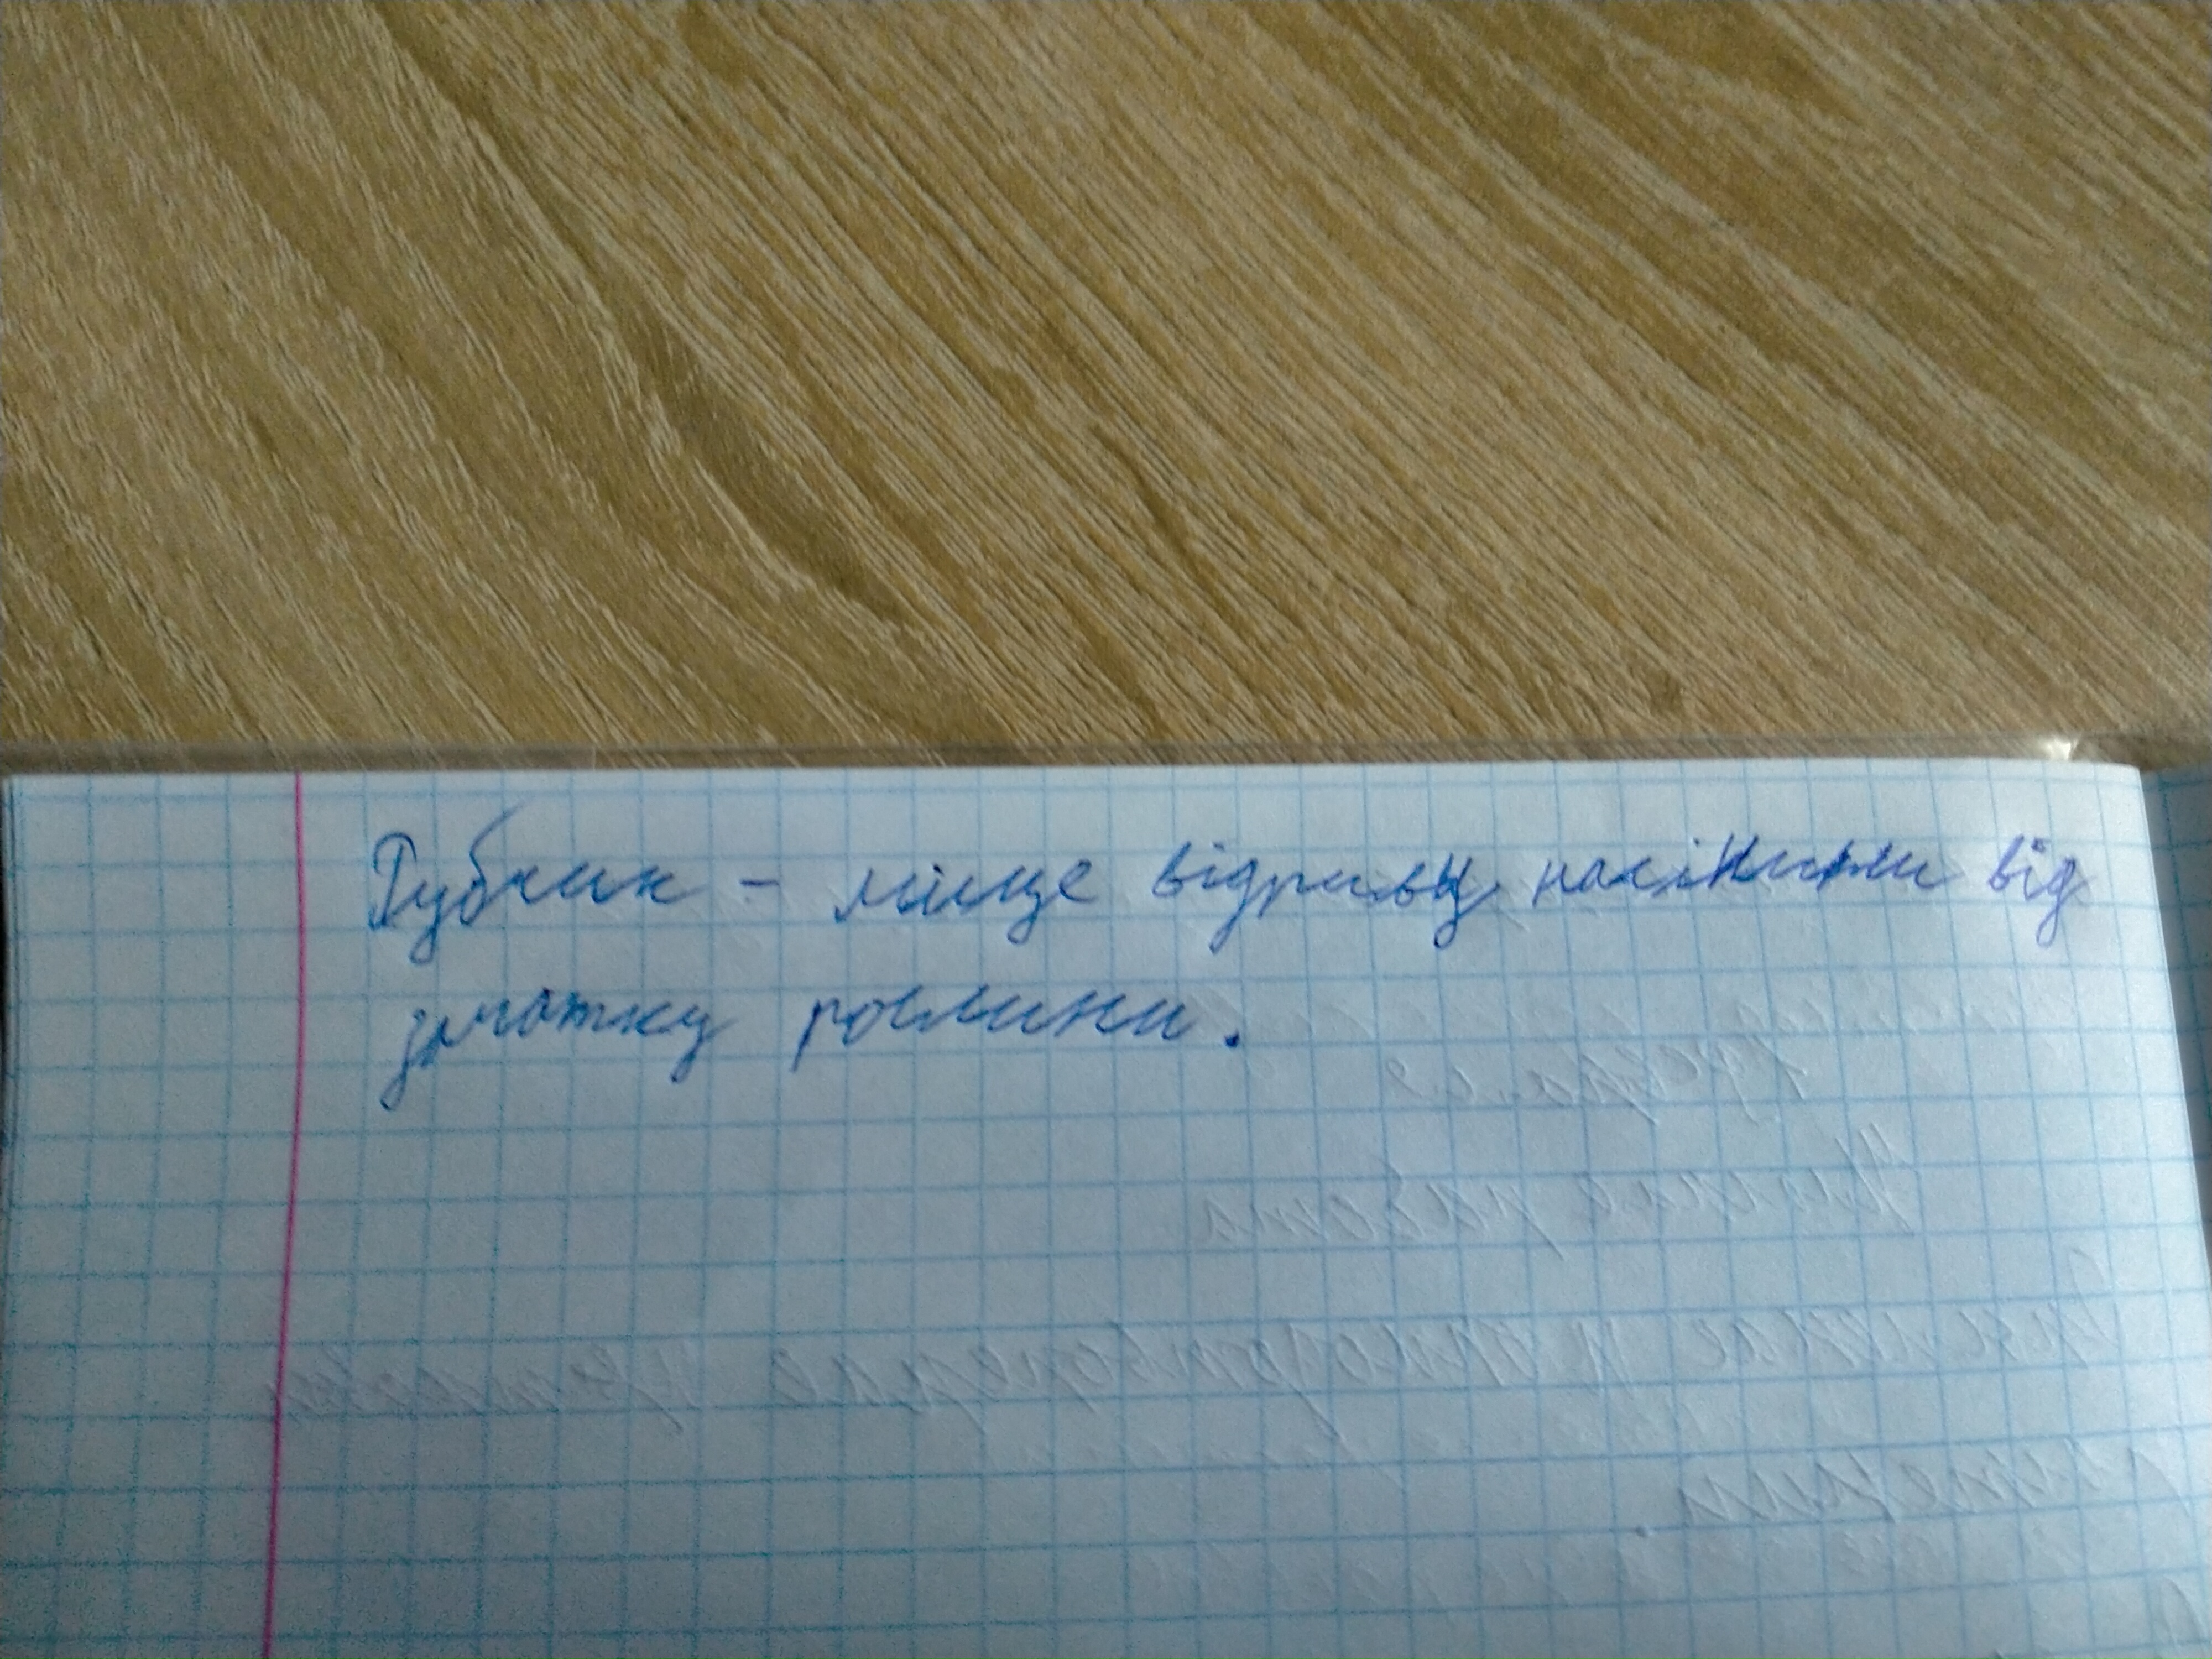 Рубчик - місце відриву насінини від
зачатку рослини.